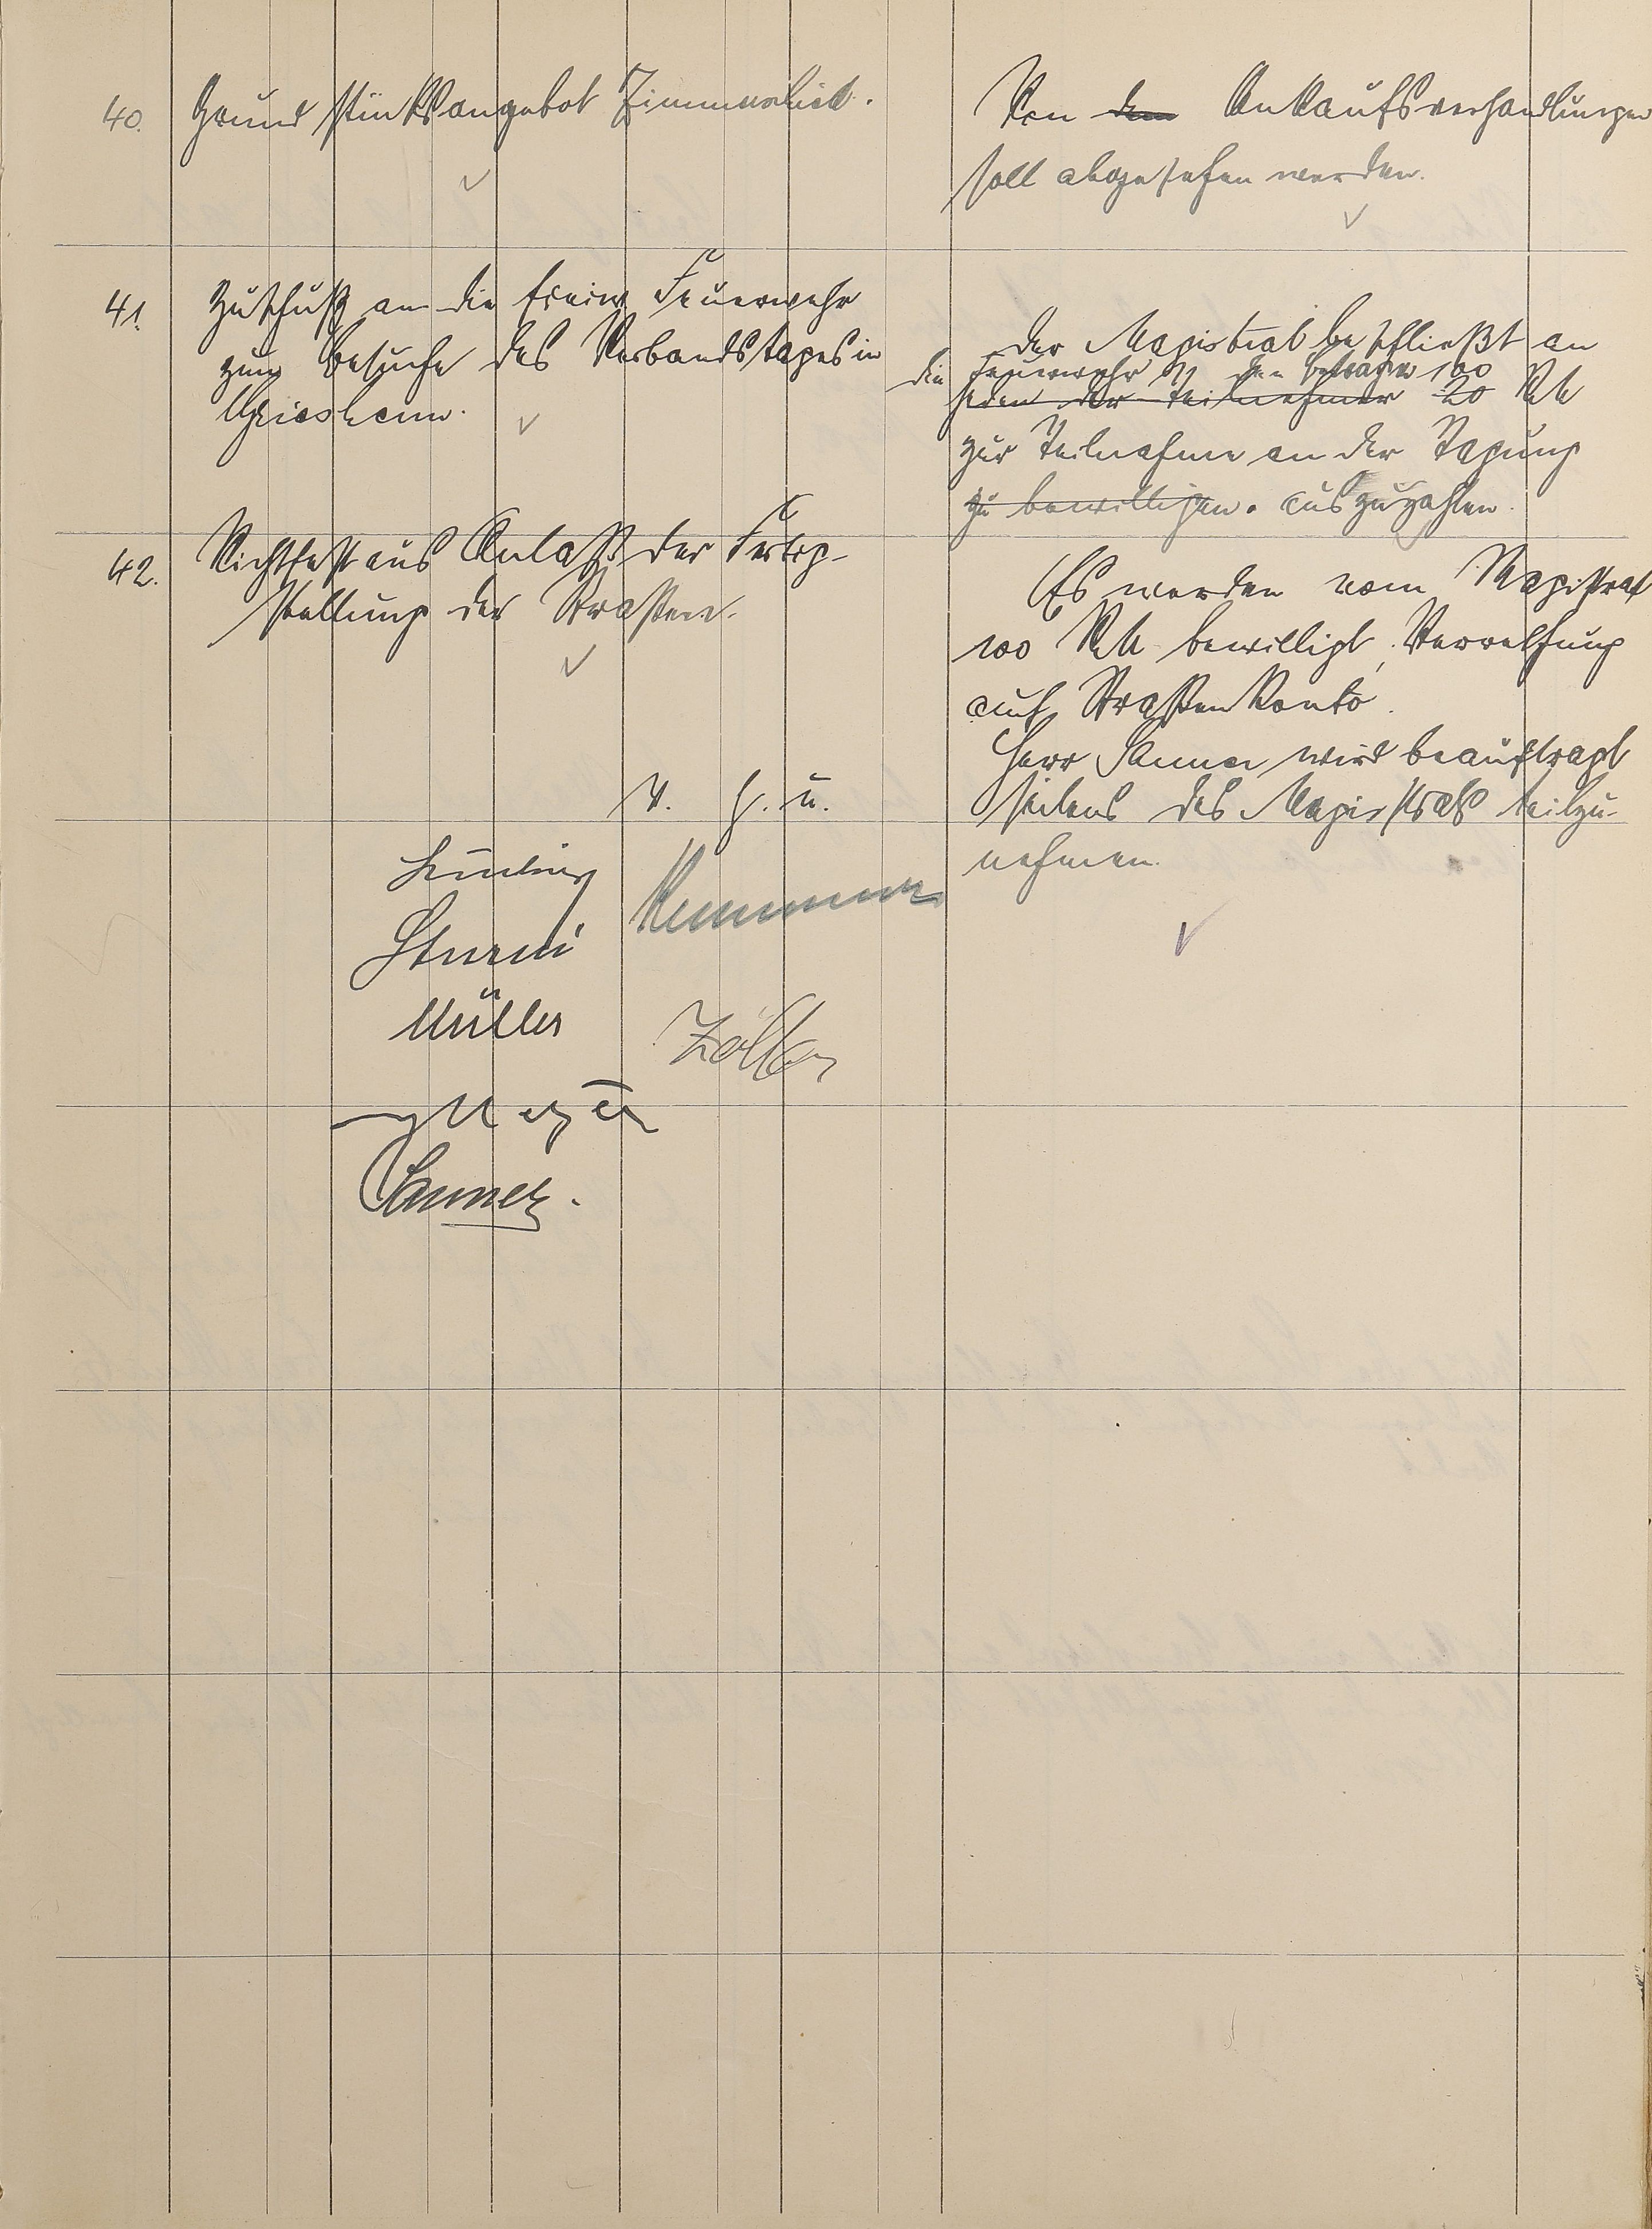 40. Grundstücksangebot Zimmerschied.
Von dem Ankaufsverhandlungen
soll abgesehen werden.
41. Zuschuß an die freiw. Feuerwehr
zum Besuche des Verbandstages in
Griesheim.
Der Magistrat beschließt an
die Feuerwehr den Betrag 100
jeden der Teilnehmer 20 RM
zur Teilnahme an der Tagung
zu bewilligen. auszuzahlen.
42. Richtfest aus Anlaß der Fertig-
stellung der Straßen.
Es werden vom Magistrat
100 RM bewilligt, Verrechnung
auf Straßenkonto.
Herr Sanner wird beauftragt
seitens des Magistrats teilzu-
nehmen.
V. g. u.
Sturm
Müller
Zöller
Meyer
Sanner.